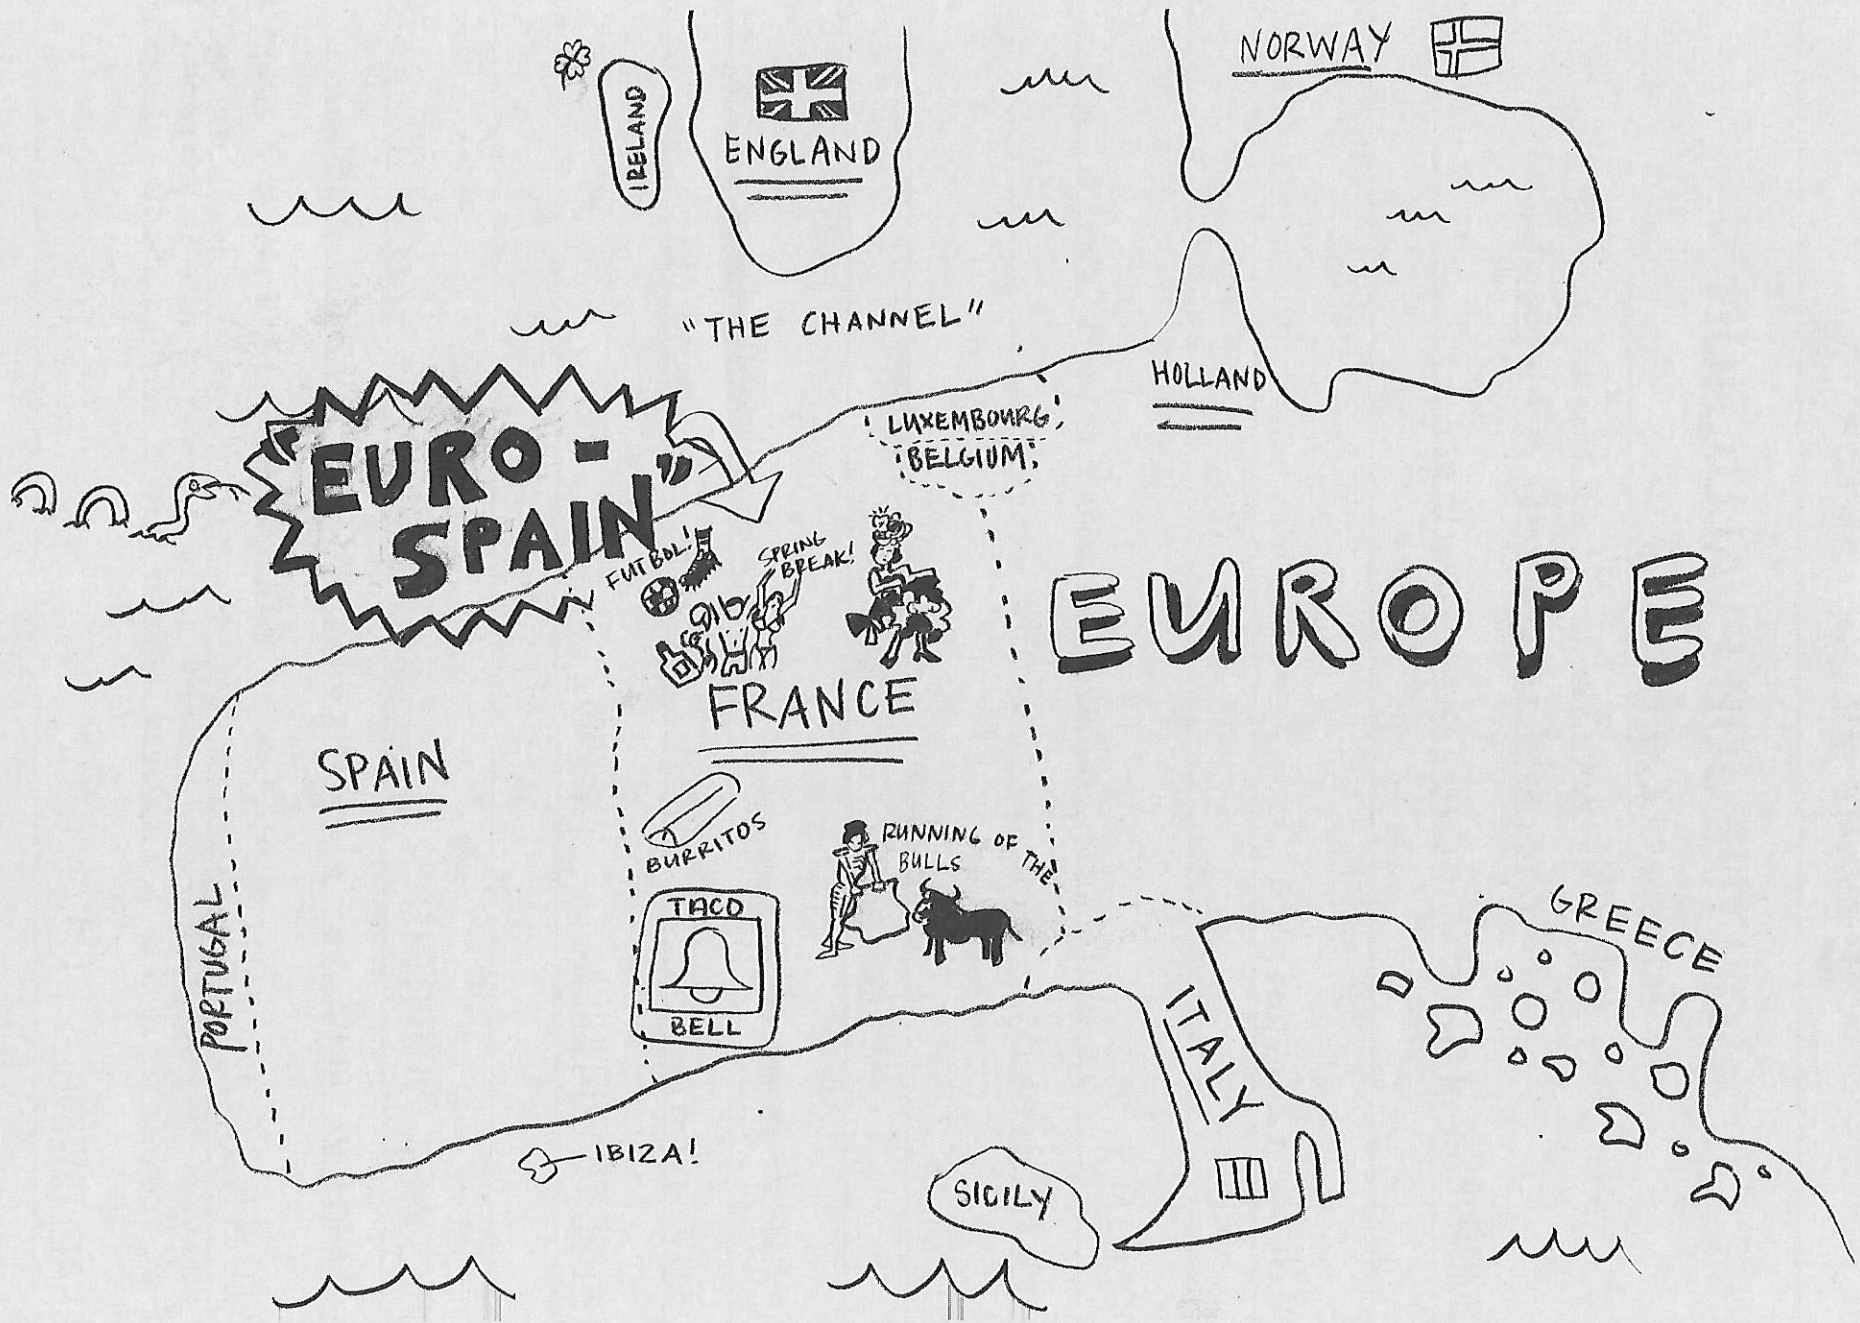 NORWAY
IRELAND
ENGLAND
"THE CHANNEL"
HOLLAND
LUXEMBOURG
BELGIUM
"EURO-
SPAIN"
FUTBOL!
SPRING
BREAK!
EUROPE
FRANCE
SPAIN
BURRITOS
RUNNING OF THE
BULLS
TACO
BELL
PORTUGAL
GREECE
ITALY
IBIZA!
SICILY